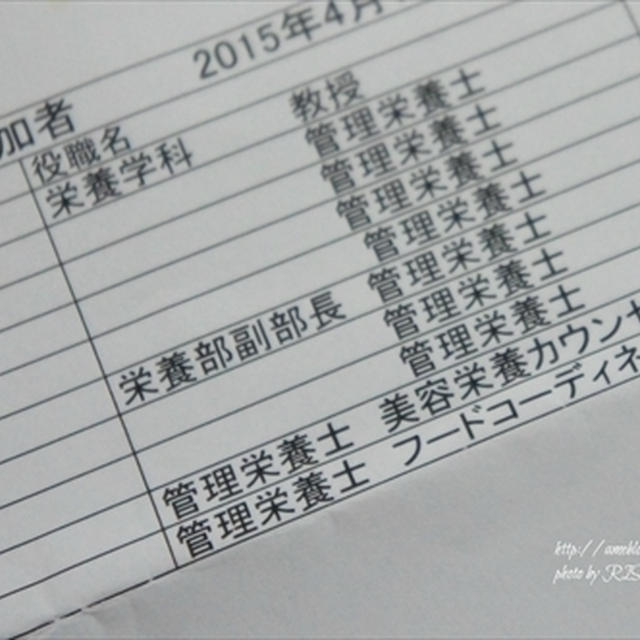 2015年4月
加者
役職名
栄養学科 教授
管理栄養士
管理栄養士
管理栄養士
管理栄養士
管理栄養士
栄養部副部長 管理栄養士
管理栄養士
管理栄養士 美容栄養カウンセ
管理栄養士 フードコーディネ
http://
photo by